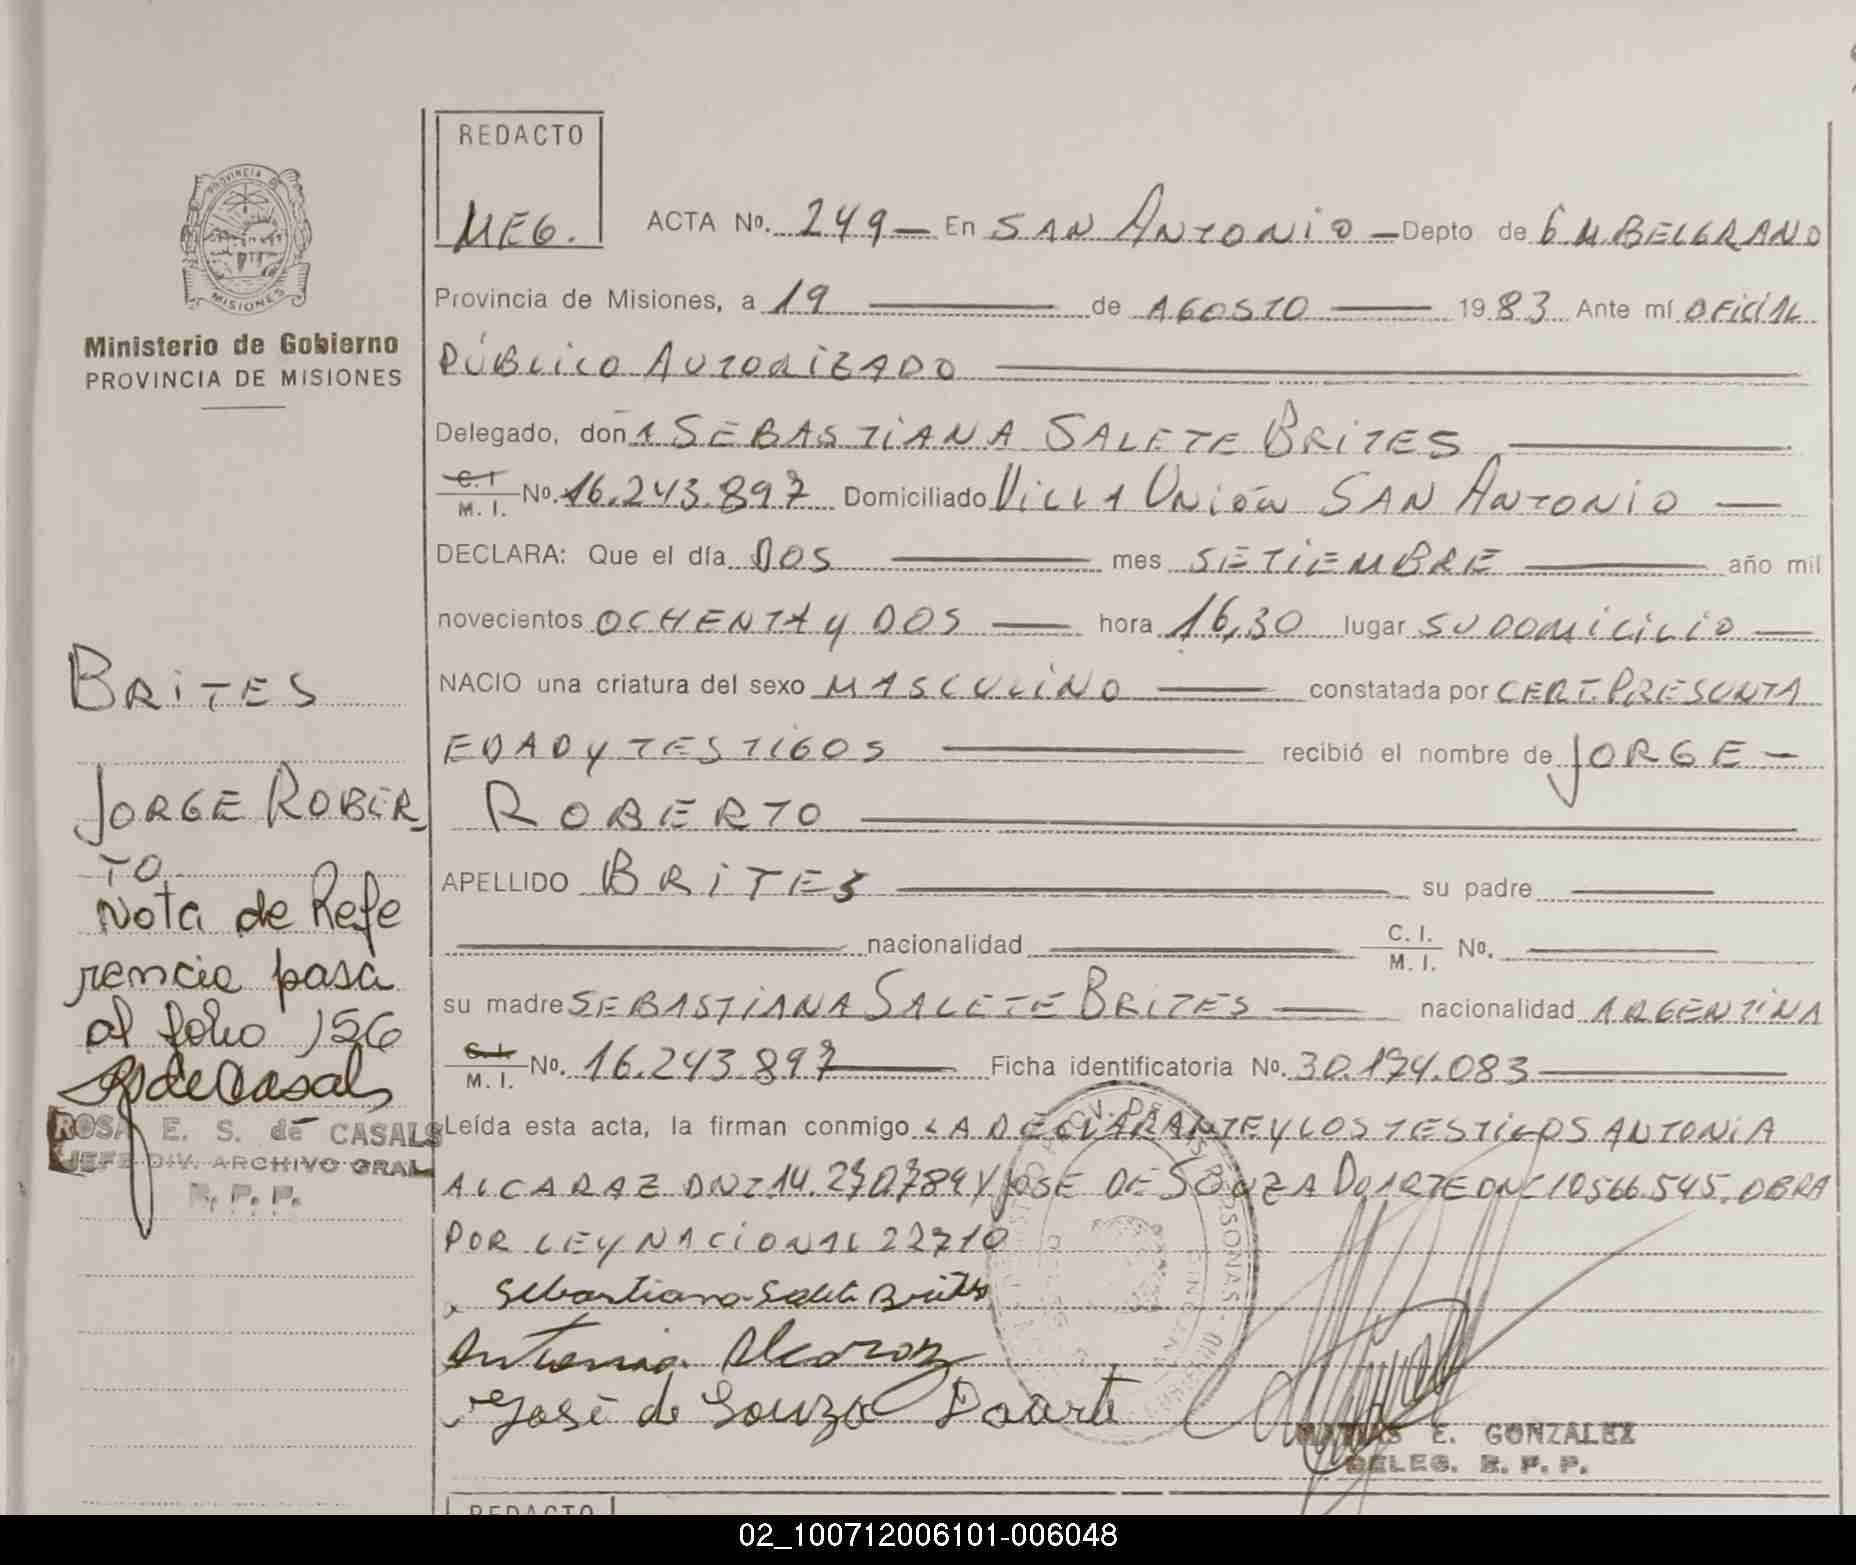 PROVINCIA DE
MISIONES
Ministerio de Gobierno
PROVINCIA DE MISIONES
BRITES
JORGE ROBER_
TO
Nota de Refe
rencia pasa
al folio 156
R de Casals
ROSA E. S. de CASALS
JEFE DIV. ARCHIVO GRAL
R. P. P.
REDACTO
MEG.
ACTA No. 249 — En SAN ANTONIO — Depto de G M. BELGRANO
Provincia de Misiones, a 19 — de AGOSTO — 1983 Ante mí OFICIAL
PÚBLICO AUTORIZADO —
Delegado, doña SEBASTIANA SALETE BRITES —
C.I. M. I. No. 16.243.897 Domiciliado VILLA UNIÓN SAN ANTONIO —
DECLARA: Que el día DOS — mes SETIEMBRE — año mil
novecientos OCHENTA y DOS — hora 16,30 lugar SU DOMICILIO —
NACIO una criatura del sexo MASCULINO — constatada por CERT. PRESUNTA
EDAD y TESTIGOS — recibió el nombre de JORGE —
ROBERTO —
APELLIDO BRITES — su padre —
— nacionalidad — C. I. M. I. No. —
su madre SEBASTIANA SALETE BRITES — nacionalidad ARGENTINA
C.I. M. I. No. 16.243.897 — Ficha identificatoria No. 30.194.083 —
Leída esta acta, la firman conmigo LA DECLARANTE Y LOS TESTIGOS ANTONIA
ALCARAZ DNI 14.270.789 Y JOSE DE SOUZA DUARTE DNI 10.566.545. OBRA
POR LEY NACIONAL 22710
Sebastiana Salete Brites
Antonia Alcaraz
José de Souza Duarte
E. GONZALEZ
DELEG. R. P. P.
REDACTO
02_100712006101-006048